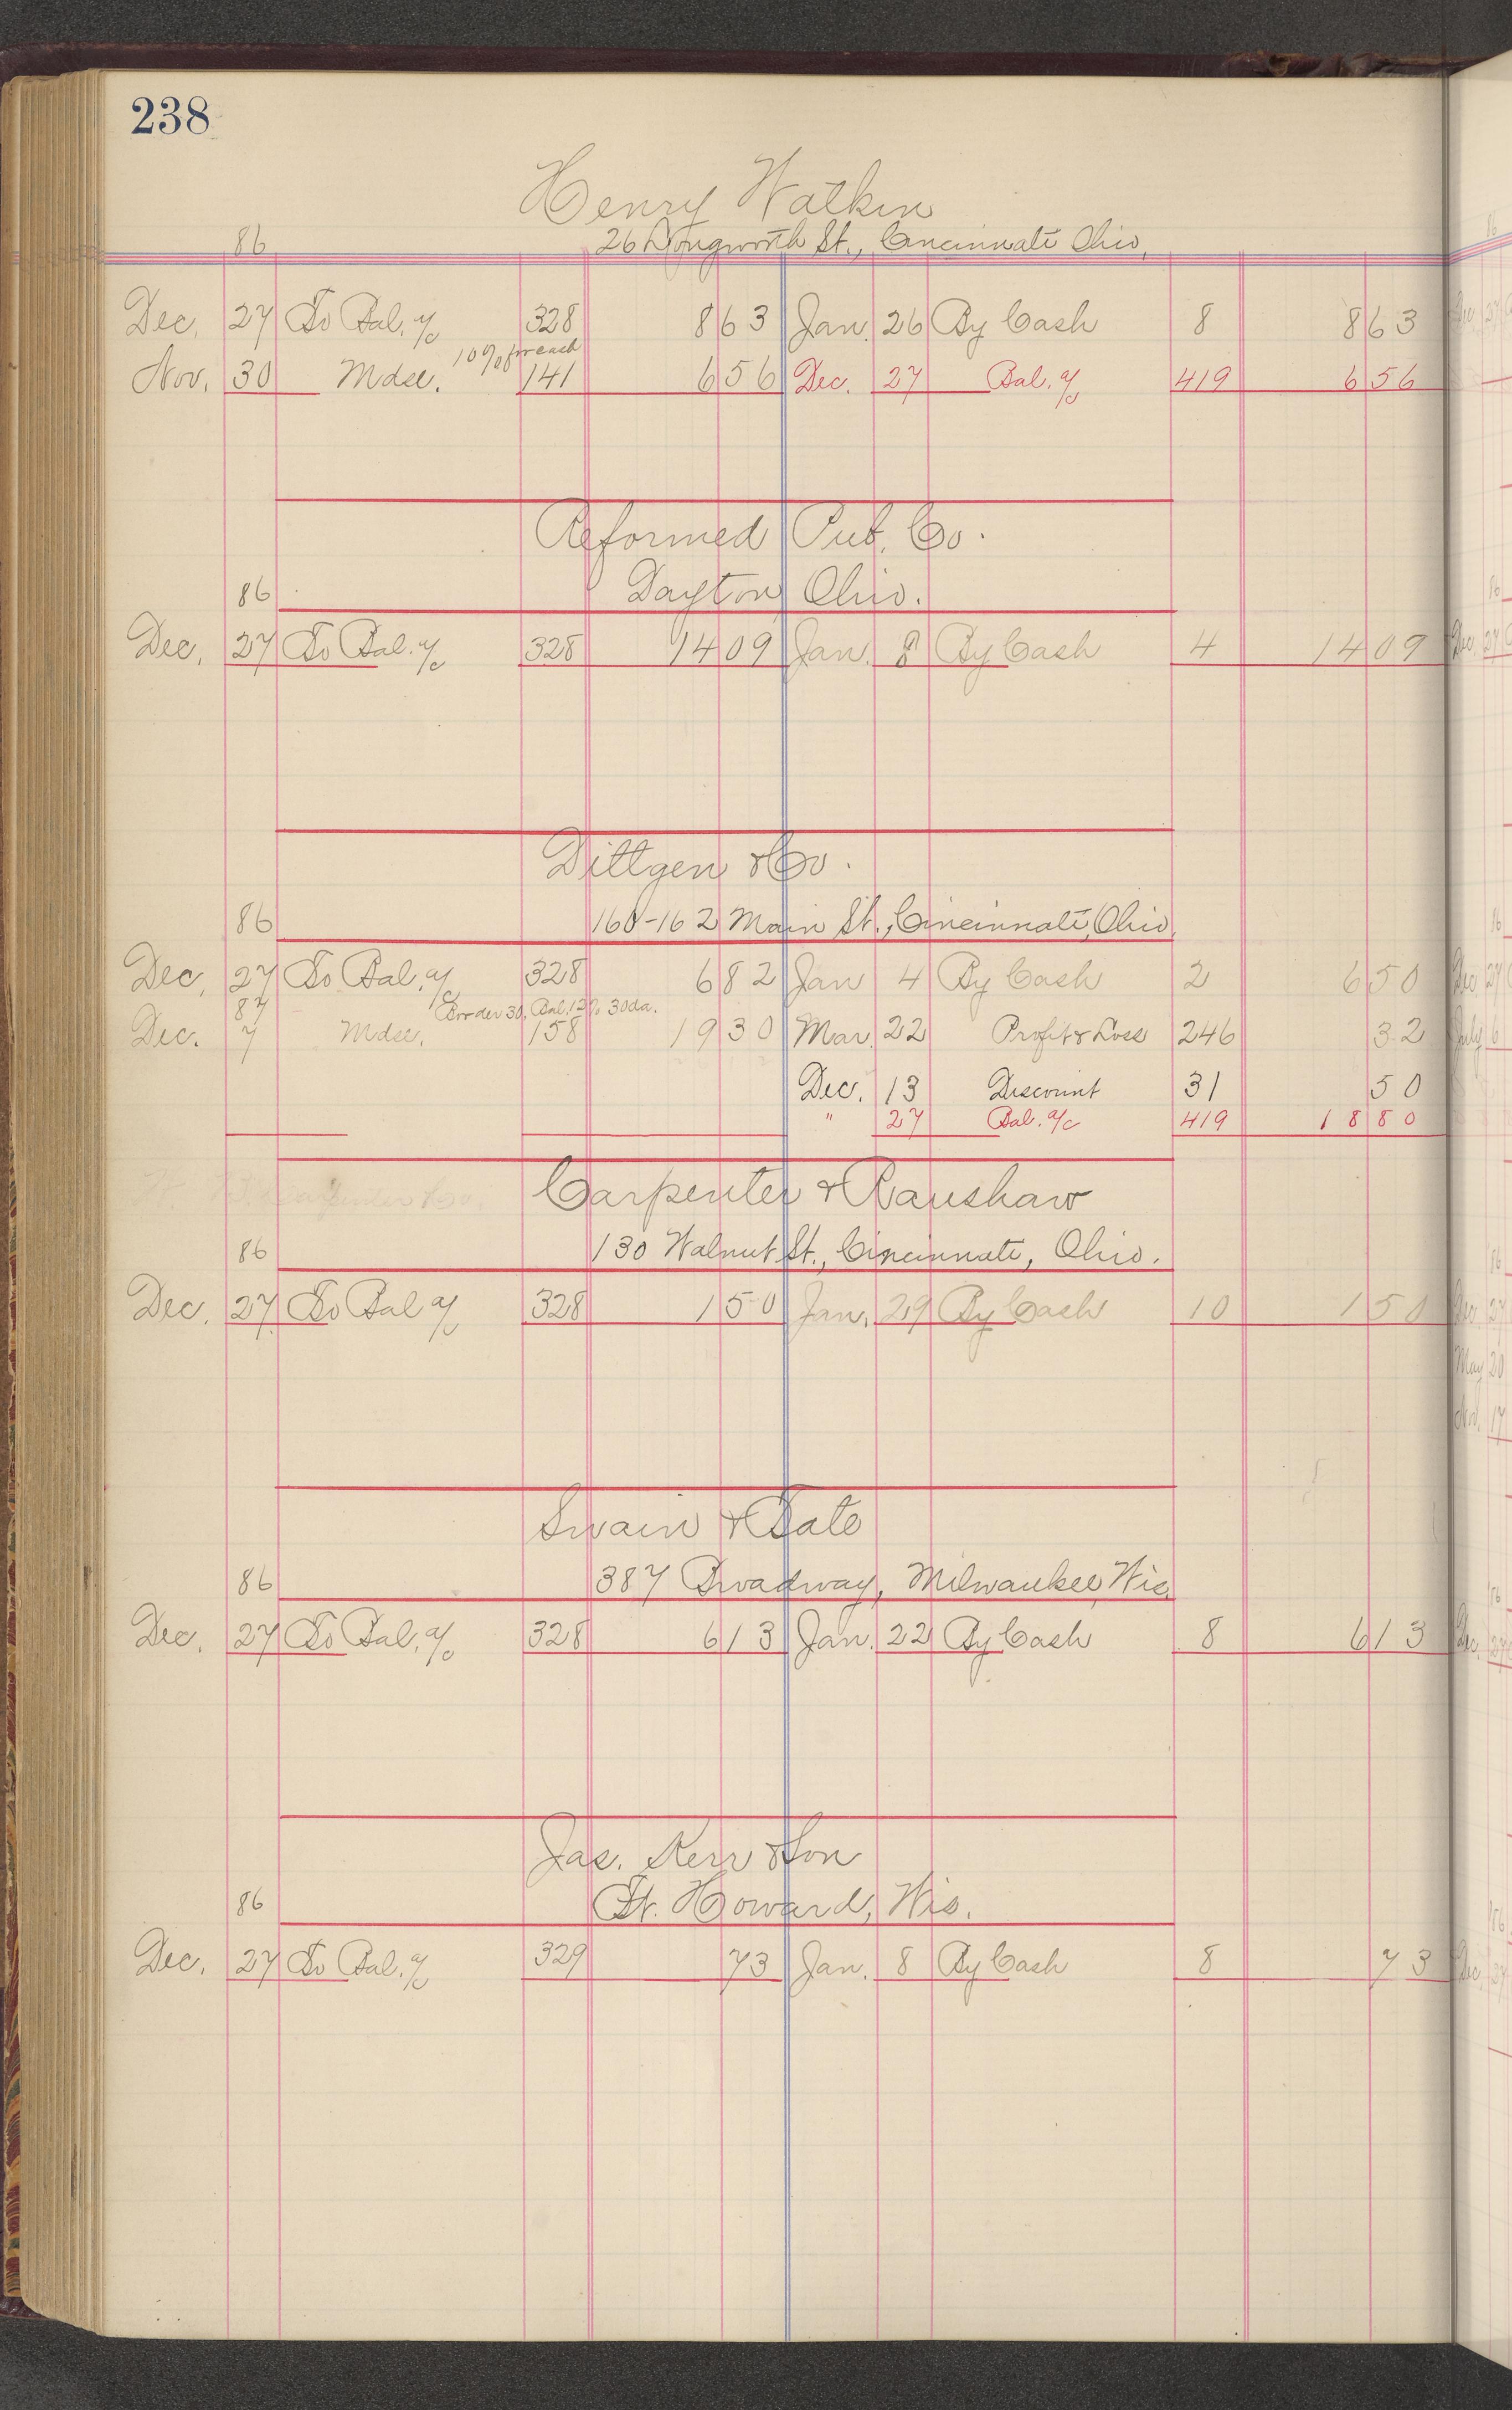 238
Henry Watkin
86 26 Longworth St., Cincinnati Ohio,
Dec. 27 To Bal. a/c 328 8 63 Jan. 26 By Cash 8 8 63
10% for cash
Nov. 30 Mdse. 141 6 56 Dec. 27 Bal. a/c 419 6 56
Reformed Pub. Co.
86 Dayton, Ohio.
Dec. 27 To Bal. a/c 328 14 09 Jan. 8 By Cash 4 14 09
Dittgen & Co.
86 160-162 Main St., Cincinnati, Ohio.
Dec. 27 To Bal. a/c 328 6 82 Jan 4 By Cash 2 6 50
87 30 da.
Dec. 7 Mdse. 158 19 30 Mar. 22 Profit & Loss 246 32
Dec. 13 Discount 31 50
" 27 Bal. a/c 419 18 80
Carpenter & Ranshaw
86 130 Walnut St., Cincinnati, Ohio.
Dec. 27 To Bal a/c 328 1 50 Jan. 29 By Cash 10 1 50
Swain & Tate
86 387 Broadway, Milwaukee, Wis.
Dec. 27 To Bal. a/c 328 6 13 Jan. 22 By Cash 8 6 13
Jas. Kerr & Son
86 Ft. Howard, Wis.
Dec. 27 To Bal. a/c 329 73 Jan. 8 By Cash 8 73